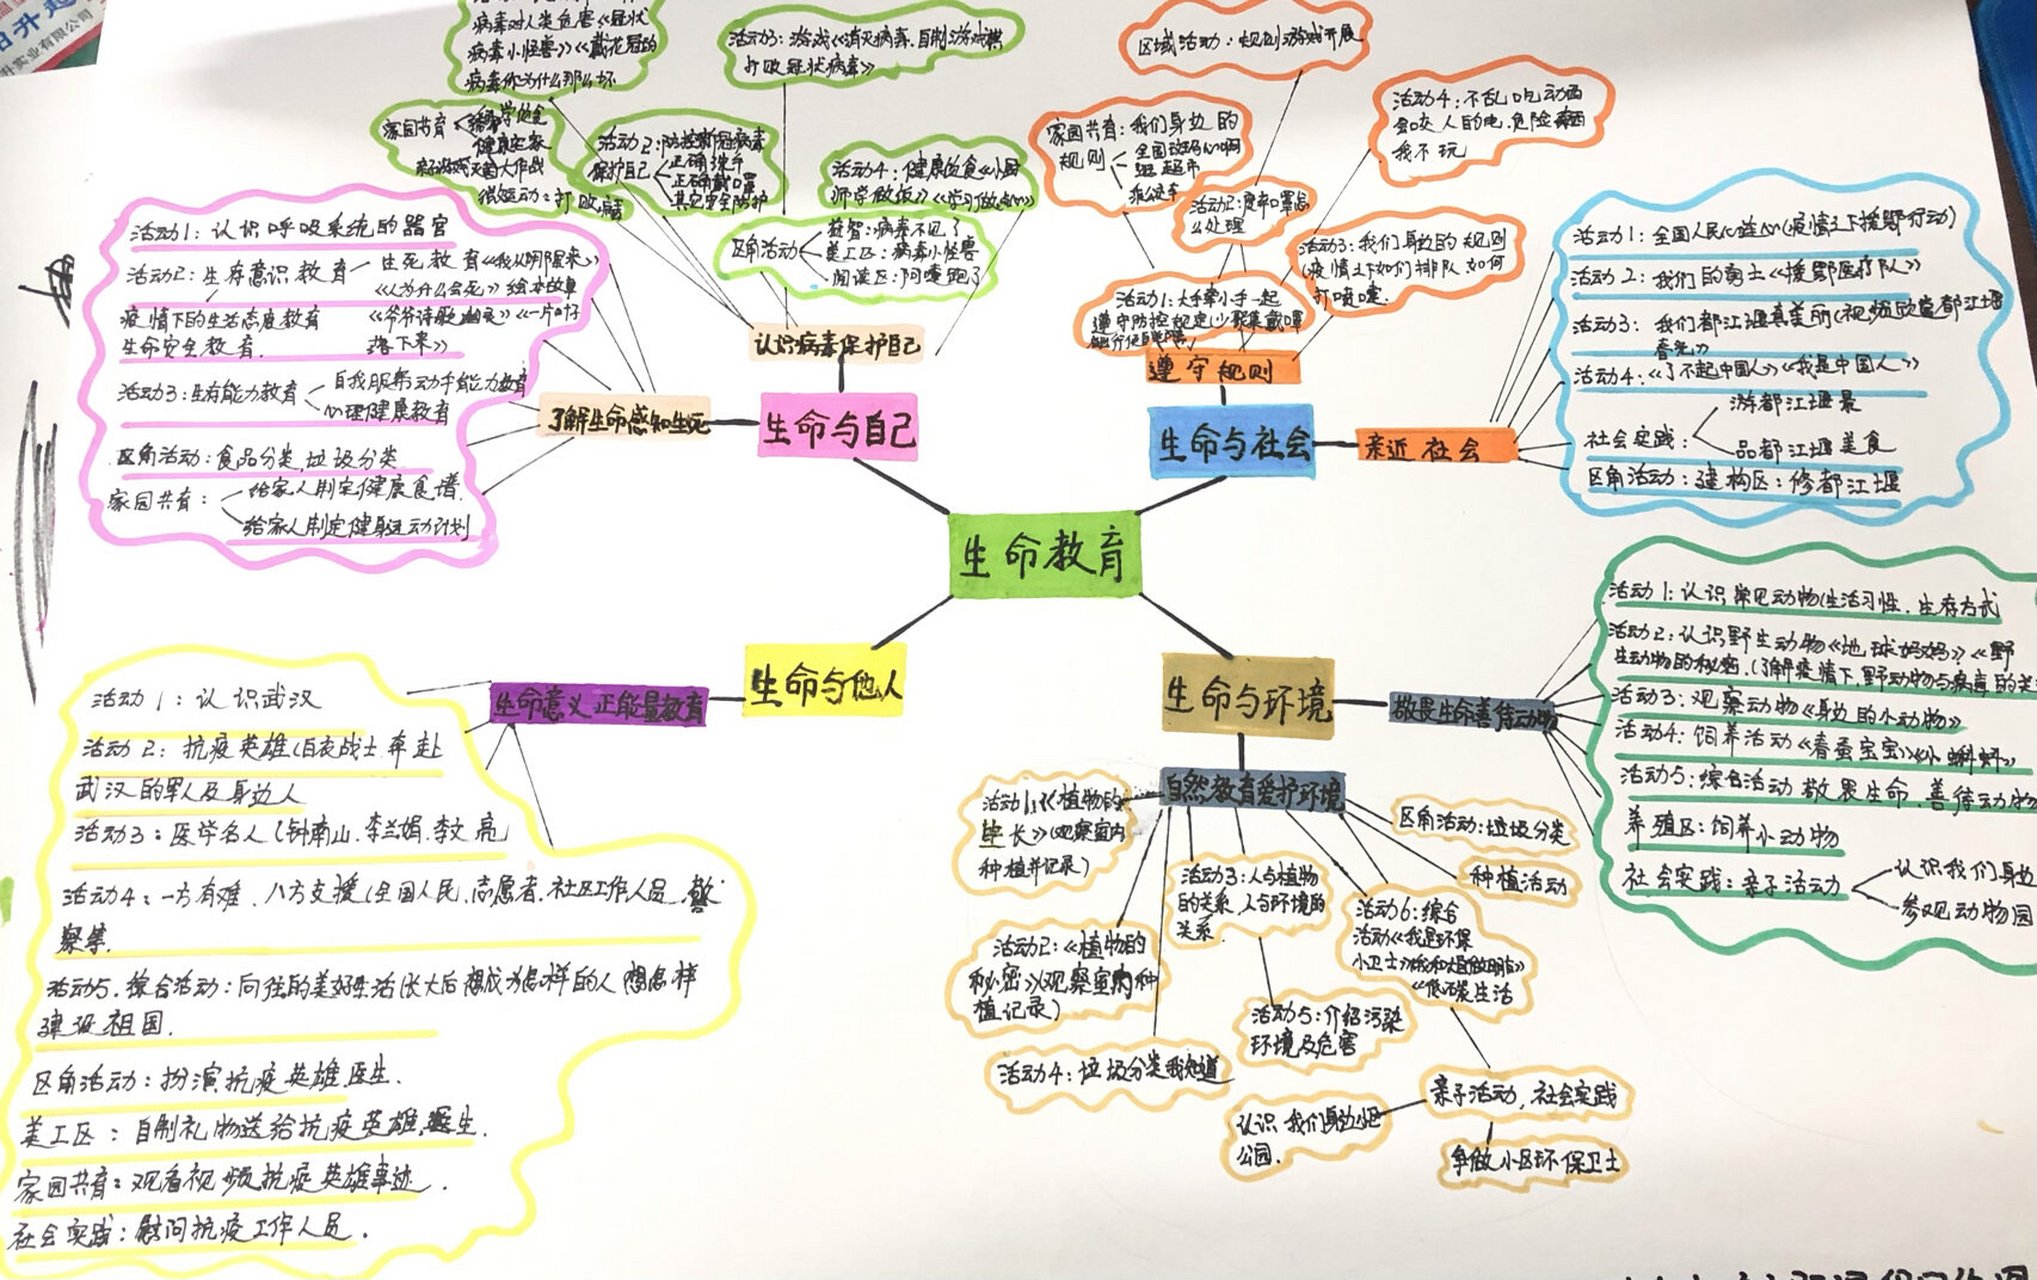 生命教育
生命与自己
认识病毒保护自己
病毒对人类危害《冠状
病毒小怪兽》《戴花冠的
病毒你为什么那么坏
活动3：游戏《消灭病毒、自制游戏棋
打败冠状病毒》
家园共育
健康
亲子游戏 灭菌大作战
微运动：打败病毒
活动2：防控新冠病毒
保护自己
正确洗手
正确戴口罩
其它安全防护
活动4：健康饮食《小厨
师学做饭》《学习做点心》
区角活动
益智：病毒不见了
美工区：病毒小怪兽
阅读区：阿嚏跑了
了解生命感知生死
活动1：认识呼吸系统的器官
活动2：生存意识教育
生死教育
《人为什么会死》绘本故事
疫情下的生活态度教育
《一片叶子
生命安全教育.
落下来》
活动3：生存能力教育
自我服务动手能力教育
心理健康教育
区角活动：食品分类,垃圾分类
家园共育：
给家人制定健康食谱.
给家人制定健身运动计划
生命与社会
遵守规则
区域活动：规则游戏开展
家园共育：我们身边的
规则
超市
活动4：不乱吃动西
会咬人的电.危险东西
我不玩
活动2：废弃口罩怎
么处理
活动3：我们身边的规则
(疫情之下如何排队.如何
打喷嚏.
活动1：大手牵小手一起
遵守防控规定(少聚集戴口罩
亲近社会
活动1：全国人民心连心(疫情之下援鄂行动)
活动2：我们的勇士《援鄂医疗队》
活动3：我们都江堰真美丽(视频欣赏都江堰
春光》
活动4：《了不起中国人》《我是中国人》
社会实践：
游都江堰景
品都江堰美食
区角活动：建构区：修都江堰
生命与他人
生命意义正能量教育
活动1：认识武汉
活动2：抗疫英雄(白衣战士奔赴
武汉的军人及身边人
活动3：医学名人(钟南山.李兰娟.李文亮)
活动4：一方有难.八方支援(全国人民.志愿者.社区工作人员.警
察等.
活动5.综合活动：向往的美好生活(长大后想成为怎样的人 想怎样
建设祖国.
区角活动：扮演抗疫英雄医生.
美工区：自制礼物送给抗疫英雄.医生.
家园共育：观看视频抗疫英雄事迹.
社会实践：慰问抗疫工作人员.
生命与环境
敬畏生命善待动物
活动1：认识常见动物(生活习性.生存方式
活动2：认识野生动物《地球妈妈》《野
生动物的秘密.(了解疫情下.野动物与病毒的关
活动3：观察动物《身边的小动物》
活动4：饲养活动《春蚕宝宝》《小蝌蚪》
活动5：综合活动 敬畏生命.善待动物
养殖区：饲养小动物
社会实践：亲子活动
认识我们身边
参观动物园
自然教育爱护环境
活动1：《植物的
生长》(观察室内
种植并记录)
活动2：《植物的
秘密》(观察室内种
植记录)
活动3：人与植物
的关系,人与环境的
关系.
活动4：垃圾分类我知道
活动5：介绍污染
环境及危害
活动6：综合
活动《我是环保
小卫士》
《低碳生活
区角活动：垃圾分类
种植活动
亲子活动,社会实践
认识我们身边小区
公园.
争做小区环保卫士